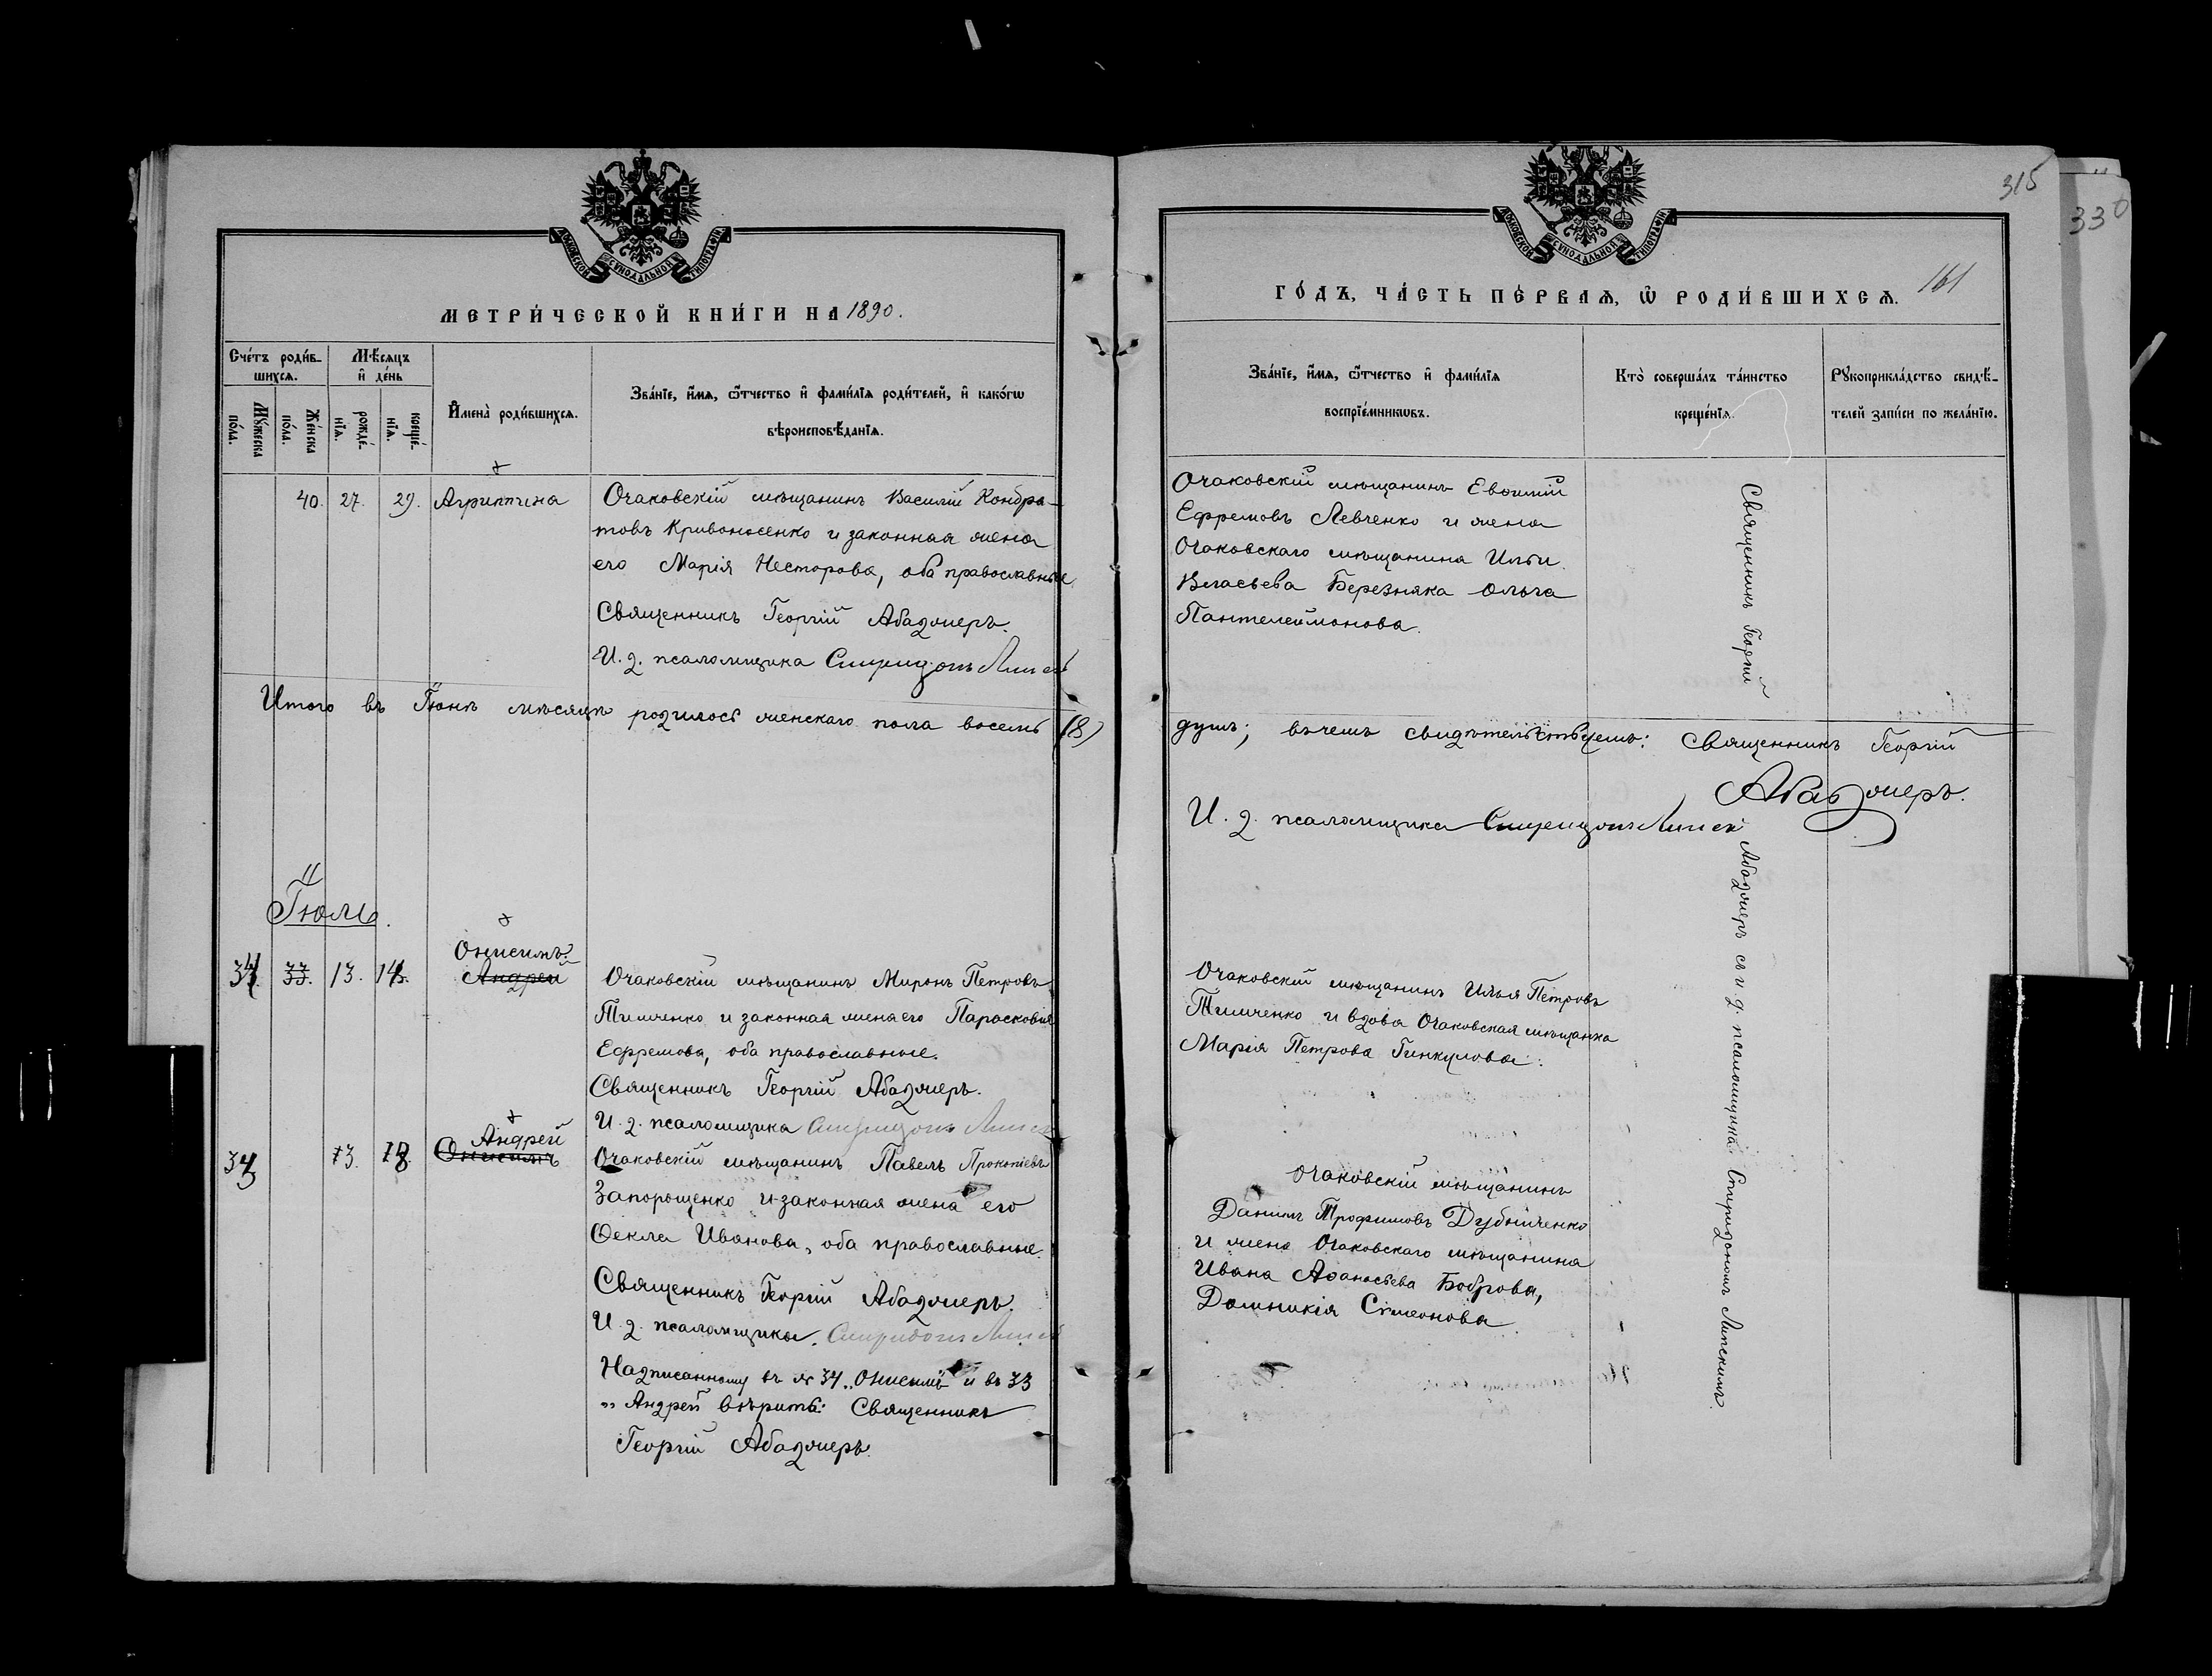 315
330
МОСКОВСКОЙ СѴНОДАЛЬНОЙ ТИПОГРАФІИ
МЕТРИ́ЧЕСКОЙ КНИ́ГИ НА 1890.
Сче́тъ роди́в-
шихсѧ.
Мѣ́сѧцъ
и҆ де́нь
Мꙋ́жеска
по́ла.
Же́нска
по́ла.
рожде́-
нїѧ.
креще́-
нїѧ.
И҆мена̀ роди́вшихсѧ.
Зва́нїе, и҆́мѧ, ѻ҆́тчество и҆ фами́лїѧ роди́телей, и҆ како́гѡ
вѣроисповѣ́данїѧ.
40. 27. 29. Агриппина
Очаковскій мѣщанинъ Василій Кондра-
товъ Кривоносенко и законная жена
его Марія Несторова, оба православные.
Священникъ Георгій Абаджеръ.
И. д. псаломщика Спиридонъ Липск
Итого въ Іюнѣ мѣсяцѣ родилось женскаго пола восемь (8)
Іюль.
34. 33. 13. 14.
Онисимъ
Андрей
Очаковскій мѣщанинъ Миронъ Петровъ
Тимченко и законная жена его Парасковія
Ефремова, оба православные.
Священникъ Георгій Абаджеръ.
И. д. псаломщика Спиридонъ Липск
33 13. 18.
Андрей
Онисимъ
Очаковскій мѣщанинъ Павелъ Прокопіевъ
Запорощенко и законная жена его
Ѳекла Иванова, оба православные.
Священникъ Георгій Абаджеръ.
И. д. псаломщика Спиридонъ Липск
Надписанному въ № 34 „Онисимъ" и въ 33
„Андрей вѣрить: Священникъ
Георгій Абаджеръ.
МОСКОВСКОЙ СѴНОДАЛЬНОЙ ТИПОГРАФІИ
ГО́ДЪ, ЧА́СТЬ ПЕ́РВАѦ, Ѡ҆ РОДИ́ВШИХСѦ. 161
Зва́нїе, и҆́мѧ, ѻ҆́тчество и҆ фами́лїѧ
воспрїе́мникѡвъ.
Кто̀ соверша́лъ та́инство
креще́нїѧ.
Рꙋкоприкла́дство свидѣ́-
телей за́писи по жела́нїю.
Очаковскій мѣщанинъ Евѳимій
Ефремовъ Левченко и жена
Очаковскаго мѣщанина Ильи
Власьева Березняка Ольга
Пантелеймонова.
душъ; въ чемъ свидѣтельствуемъ: Священникъ Георгій
Абаджеръ.
И. д. псаломщика Спиридонъ Липск
Очаковскій мѣщанинъ Илья Петровъ
Тимченко и вдова Очаковская мѣщанка
Марія Петрова Гинкулова.
Очаковскій мѣщанинъ
Даніилъ Трофимовъ Дубниченко
и жена Очаковскаго мѣщанина
Ивана Аѳанасьева Боброва,
Домникія Сѵмеонова.
Священникъ Георгій Абаджеръ съ и. д. псаломщика Спиридономъ Липскимъ.